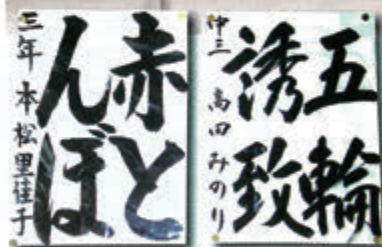 五輪
誘致
中三 高田みのり
赤と
んぼ
三年 本松里佳子